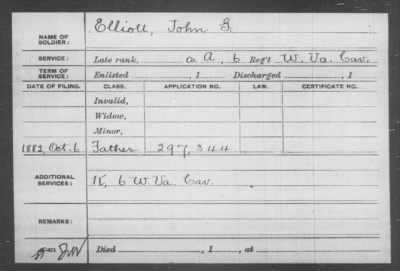 NAME OF SOLDIER: Elliott, John G.
SERVICE: Late rank, Co. A, 6 Reg't W. Va. Cav.
TERM OF SERVICE: Enlisted , 1 Discharged , 1
DATE OF FILING. CLASS. APPLICATION NO. LAW. CERTIFICATE NO.
Invalid,
Widow,
Minor,
1882, Oct. 6 Father 297,344
ADDITIONAL SERVICES: K, 6 W. Va. Cav.
REMARKS:
Died , 1 , at